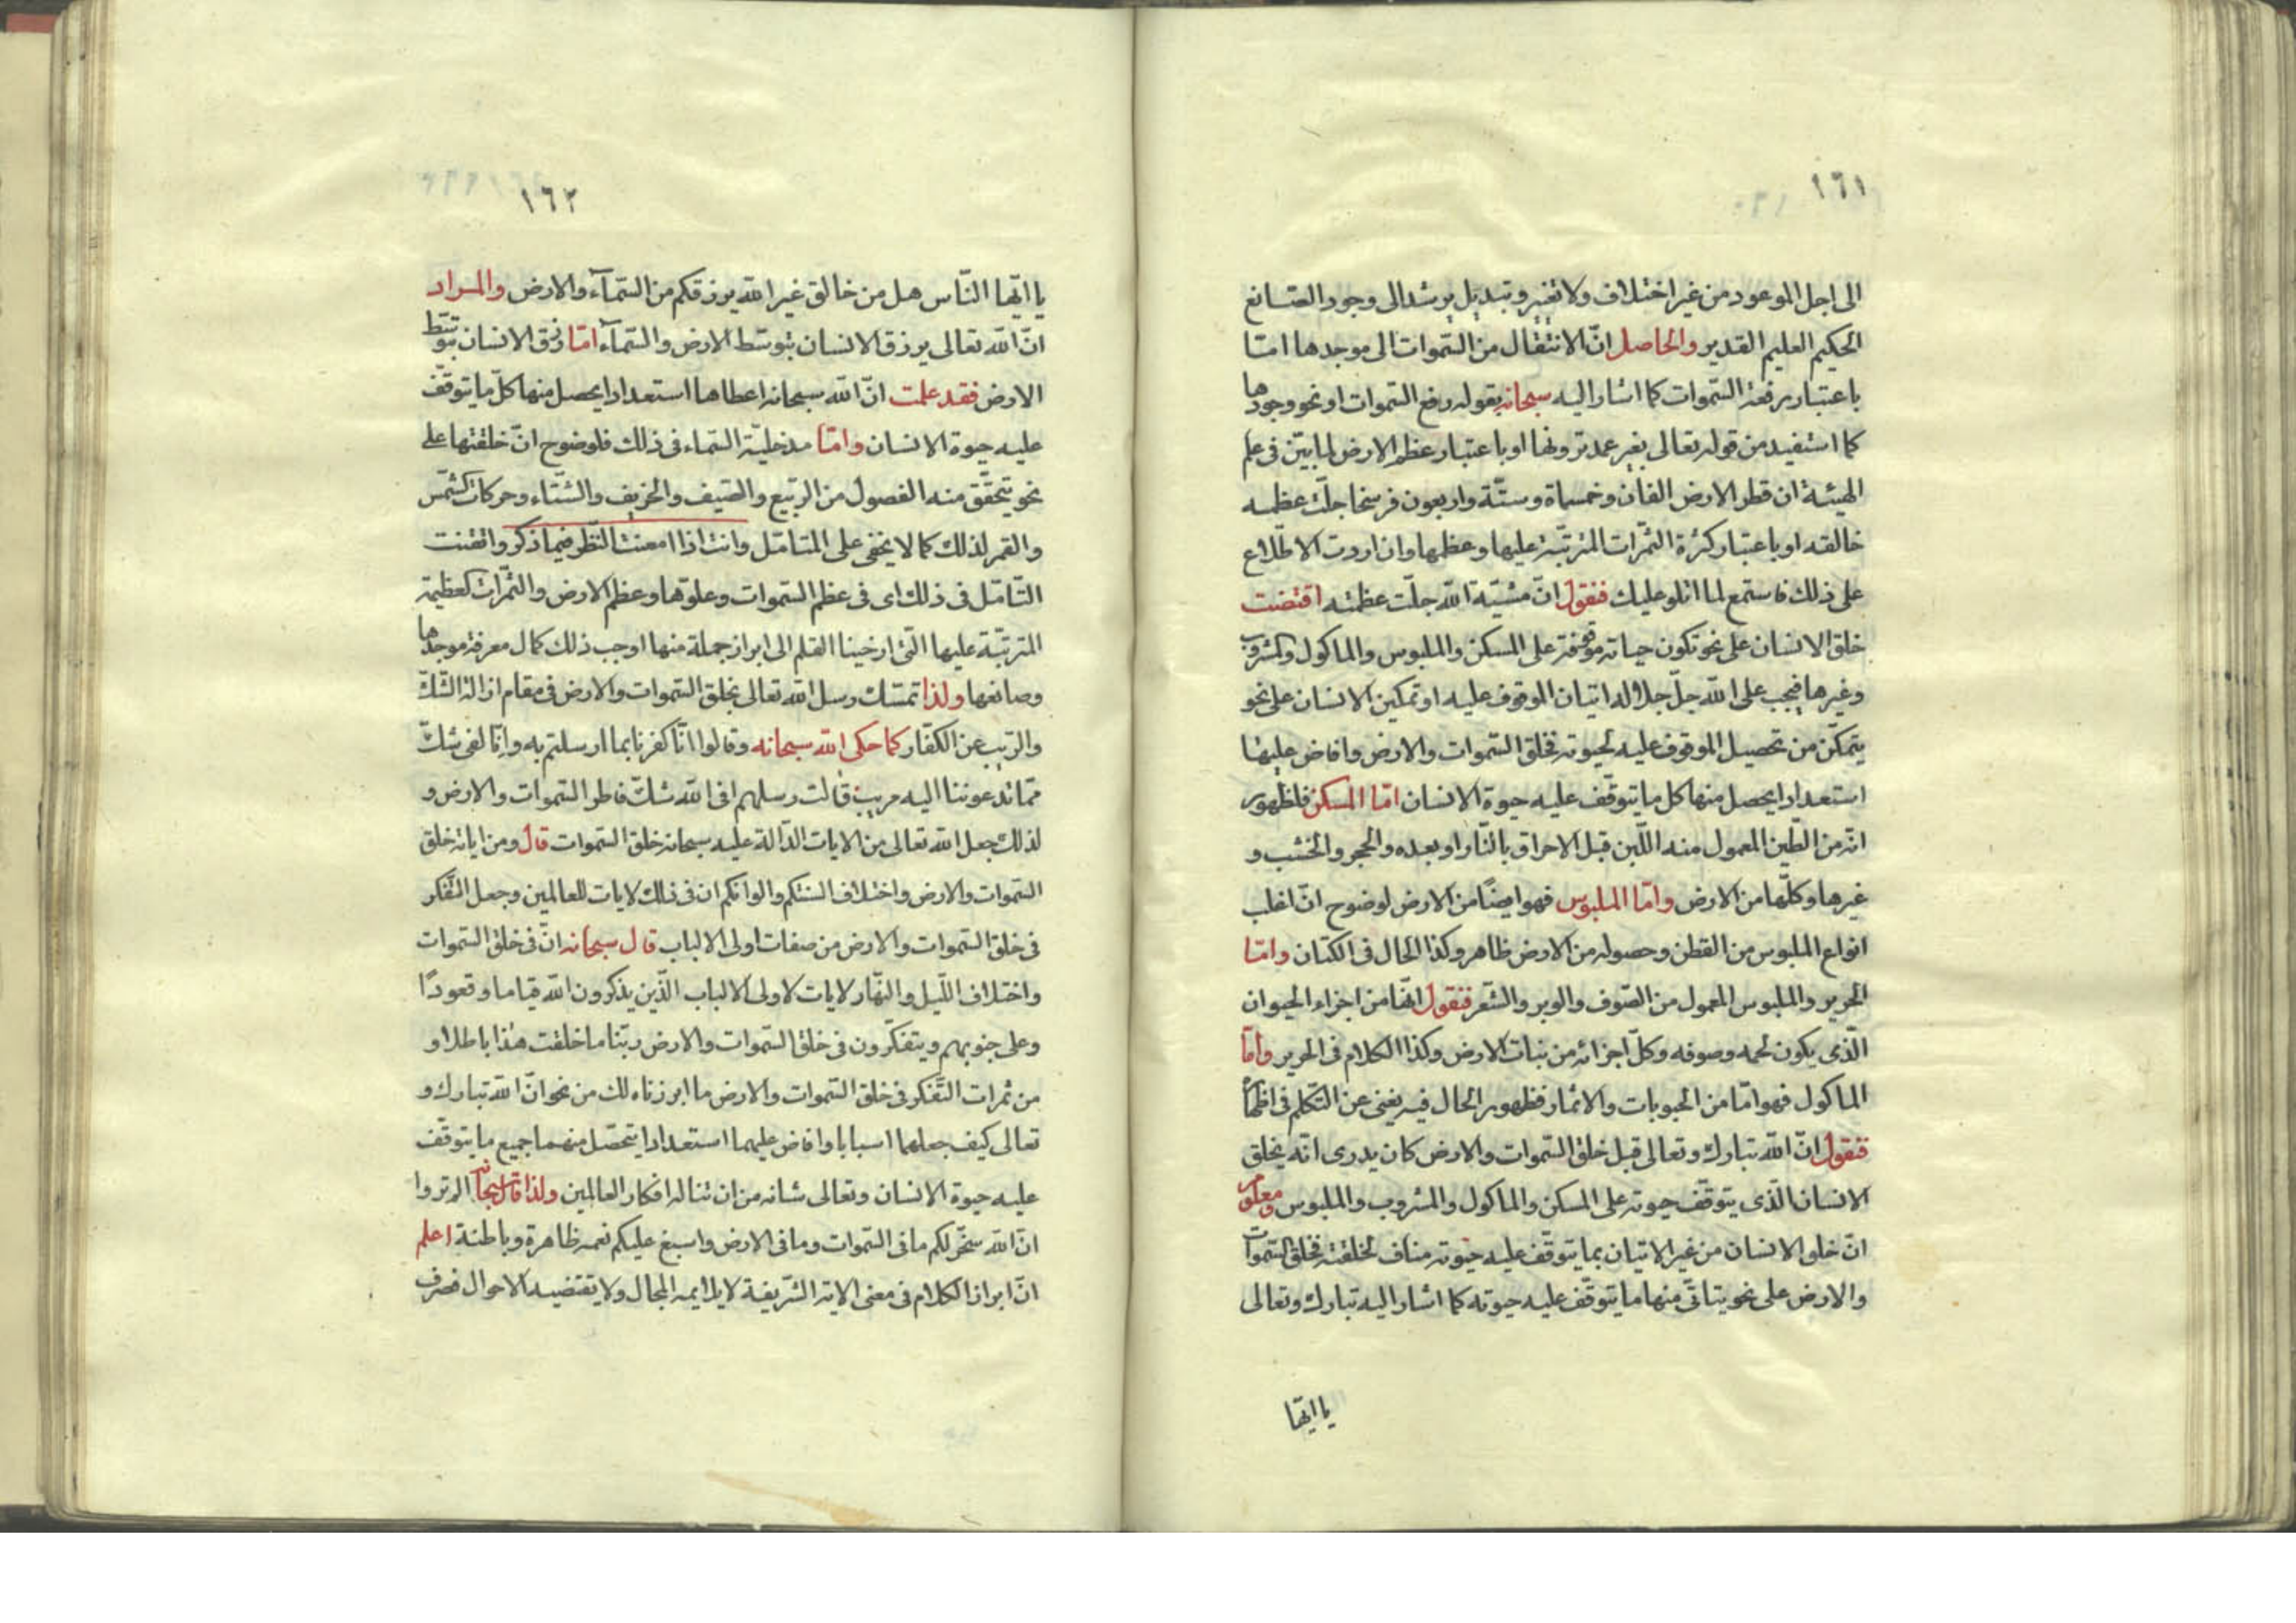 ١٦١
الى اجل الموعود من غير اختلاف ولا تغير و تبديل يرشد الى وجود الصانع
الحكيم العليم القدير والحاصل انّ الانتقال من السّموات الى موجدها امّا
باعتبار رفعة السّموات كما اشار اليه سبحانه بقوله رفع السّموات او نحو وجودها
كما استفيد من قوله تعالى بغير عمد ترونها او باعتبار عظم الارض لما بيّن فى علم
الهيئة ان قطر الارض الفان وخمسماة وستّة واربعون فرسخا جلّت عظمه
خالقه او باعتبار كثرة الثّمرات المترتّبة عليها وعظمها وان اردت الاطّلاع
على ذلك فاستمع لما اتلو عليك فنقول انّ مشيّة الله جلّت عظمته اقتضت
خلق الانسان على نحو تكون حياته موقوفة على المسكن والملبوس والماكول والمشروب
وغيرها فيجب على الله جلّ جلاله اتيان الموقوف عليه او تمكين الانسان على نحو
يتمكّن من تحصيل الموقوف عليه لحيوته فخلق السّموات والارض وافاض عليها
استعدادا يحصل منها كل ما يتوقّف عليه حيوة الانسان امّا المسكن فلظهور
انّه من الطّين المعمول منه اللّبن قبل الاحراق بالنّار او بعده والحجر والخشب و
غيرها وكلّها من الارض وامّا الملبوس فهو ايضًا من الارض لوضوح انّ اغلب
انواع الملبوس من القطن وحصوله من الارض ظاهر وكذا الحال فى الكتان وامّا
الحرير والملبوس المعمول من الصّوف والوبر والشّعر فنقول انّها من اجزاء الحيوان
الّذى يكون لحمه وصوفه وكلّ اجزائه من نبات الارض وكذا الكلام فى الحرير وامّا
الماكول فهو امّا من الحبوبات والاثمار فظهور الحال فيه يغنى عن التّكلم فى اظهاره
فنقول انّ الله تبارك وتعالى قبل خلق السّموات والارض كان يدرى انّه يخلق
الانسان الّذى يتوقّف حيوته على المسكن والماكول والمشروب والملبوس ومعلوم
انّ خلق الانسان من غير الاتيان بما يتوقّف عليه حيوته مناف لخلقته فخلق السّموات
والارض على نحو يتاتّى منها ما يتوقّف عليه حيوته كما اشار اليه تبارك وتعالى
يا ايّها
١٦٢
يا ايّها النّاس هل من خالق غير الله يرزقكم من السّمآء والارض والمراد
انّ الله تعالى يرزق الانسان بتوسّط الارض والسّمآء امّا رزق الانسان بتوسّط
الارض فقد علمت انّ الله سبحانه اعطاها استعدادا يحصل منها كلّ ما يتوقّف
عليه حيوة الانسان وامّا مدخليّة السّماء فى ذلك فلوضوح انّ خلقتها على
نحو يتحقّق منه الفصول من الرّبيع والصّيف والخريف والشّتاء وحركات الشّمس
والقمر لذلك كما لا يخفى على المتامّل وانت اذا امعنت النّظر فيما ذكر واتقنت
التّامّل فى ذلك اى فى عظم السّموات وعلوّها وعظم الارض والثّمرات العظيمة
المترتّبة عليها الّتى ارخينا القلم الى ابراز جملة منها اوجب ذلك كمال معرفة موجدها
وصانعها ولذا تمسّك رسل الله تعالى بخلق السّموات والارض فى مقام ازالة الشّكّ
والرّيب عن الكفّار كما حكى الله سبحانه وقالوا انّا كفرنا بما ارسلتم به وانّا لفى شكّ
ممّا تدعوننا اليه مريب قالت رسلهم افى الله شكّ فاطر السّموات والارض و
لذلك جعل الله تعالى من الايات الدّالّة عليه سبحانه خلق السّموات قال ومن اياته خلق
السّموات والارض واختلاف السنتكم والوانكم ان فى ذلك لايات للعالمين وجعل التّفكّر
فى خلق السّموات والارض من صفات اولى الالباب قال سبحانه انّ فى خلق السّموات
واختلاف اللّيل والنّهار لايات لاولى الالباب الّذين يذكرون الله قياما وقعودًا
وعلى جنوبهم ويتفكّرون فى خلق السّموات والارض ربّنا ما خلقت هذا باطلا و
من ثمرات التّفكّر فى خلق السّموات والارض ما ابرزناه لك من نحو انّ الله تبارك و
تعالى كيف جعلهما اسبابا وافاض عليهما استعدادا يتحصّل منهما جميع ما يتوقّف
عليه حيوة الانسان وتعالى شانه من ان تناله افكار العالمين ولذا قال سبحانه الم تروا
انّ الله سخّر لكم ما فى السّموات وما فى الارض واسبغ عليكم نعمه ظاهرة وباطنة اعلم
انّ ابراز الكلام فى معنى الاية الشّريفة لا يلايمه المجال ولا يقتضيه الاحوال فصرف